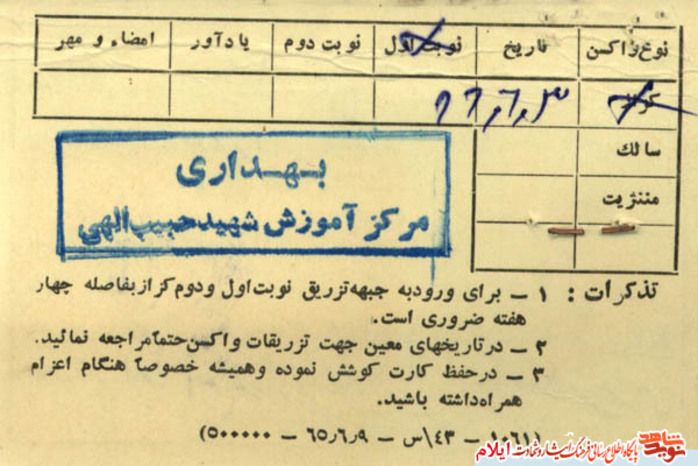 نوع واکسن تاریخ نوبت اول نوبت دوم یادآور امضاء و مهر
کزاز ۶۶٫۶٫۳
سالك
مننژیت
بهداری
مرکز آموزش شهید حبیب‌الهی
تذکرات : ۱ ـ برای ورود به جبهه تزریق نوبت اول و دوم کزاز بفاصله چهار
هفته ضروری است.
۲ ـ در تاریخهای معین جهت تزریقات واکسن حتماً مراجعه نمائید.
۳ ـ در حفظ کارت کوشش نموده و همیشه خصوصاً هنگام اعزام
همراه داشته باشید.
(۱۰۶۱ ـ ۴۳\س ـ ۶۵٫۶٫۹ ـ ۵۰۰۰۰۰)
نوید شاهد
پایگاه اطلاع رسانی فرهنگ ایثار و شهادت ایلام